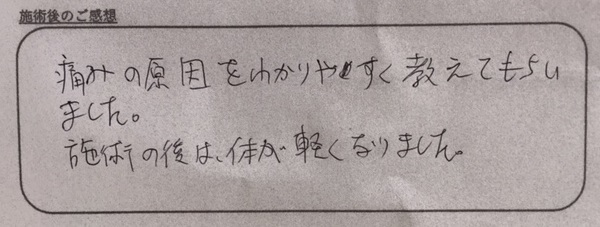 施術後のご感想
痛みの原因をわかりやすく教えてもらい
ました。
施術の後は、体が軽くなりました。